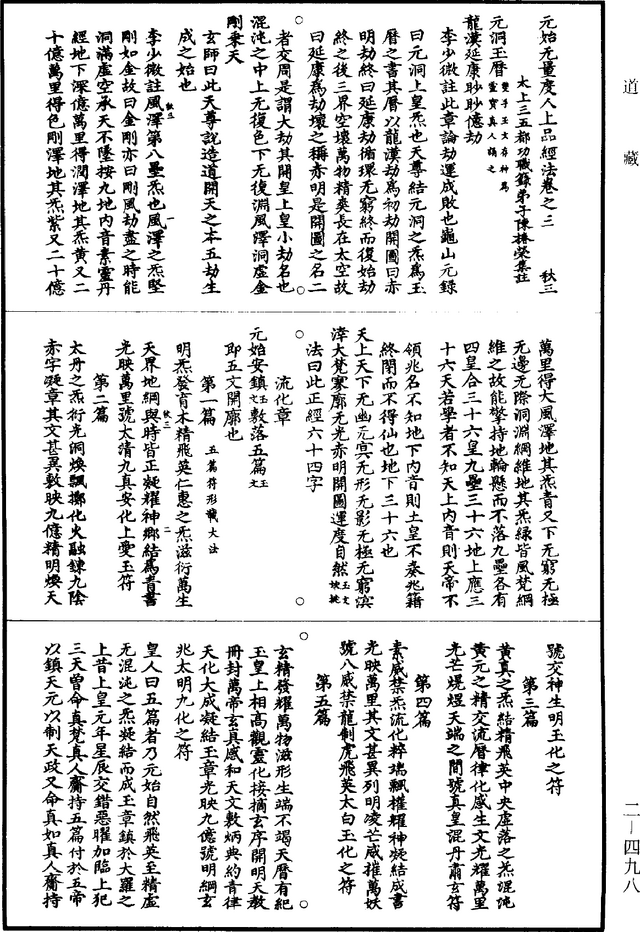 道藏
二—四九八
元始无量度人上品經法卷之三　秋三
太上三五都功職籙弟子陳椿榮集註
元洞玉曆
龍漢延康眇眇億劫
李少微註此章論劫運成敗也龜山元錄
曰元洞上皇炁也天尊結元洞之炁為玉
曆之書其曆以龍漢劫為初劫開圖曰赤
明劫終曰延康劫循環无窮終而復始劫
終之後三界空壞萬物精爽長在太空故
曰延康為劫壞之稱赤明是開圖之名二
者交周是謂大劫其開皇上皇小劫名也
混沌之中上无復色下无復淵風澤洞虛金
剛乘天
玄師曰此天尊説造道開天之本五劫生
成之始也
李少微註風澤第八壘炁也風澤之炁堅
剛如金故曰金剛亦曰剛風劫盡之時能
洞滿虛空承天不墜按九地內音素靈丹
經地下深億萬里得潤澤地其炁黄又二
十億萬里得色剛澤地其炁紫又二十億
萬里得大風澤地其炁青又下无窮无極
无邊无際洞淵綱維地其炁綠皆風梵綱
維之故能擎持地輪懸而不落九壘各有
四皇合三十六皇九壘三十六地上應三
十六天若學者不知天上內音則天帝不
領兆名不知地下內音則土皇不奏兆籍
終閉而不得仙也地下三十六也
天上天下无幽元冥无形无影无極无窮溟
涬大梵寥廓无光赤明開圖運度自然
法曰此正經六十四字
流化章
元始安鎮敷落五篇
即五文開廓也
第一篇 五篇符形載大法
明炁發育木精飛英仁惠之炁滋衍萬生
天界地綱與時皆正凝耀神鄉結為青書
光映萬里號太清九真安化上愛玉符
第二篇
太丹之炁衍光洞煥飄擲化火融鍊九陰
赤字凝章其文甚異敷映九億精明煥天
號交神生明玉化之符
第三篇
黄真之炁結精飛英中央虛落之炁混沌
黄元之精交流曆律化感生文光耀萬里
光芒焜煜天端之間號真皇混丹肅玄符
第四篇
素威禁炁流化粹端飄摧耀神凝結成書
光映萬里其文甚異列明凌芒威摧萬妖
號八威禁龍制虎飛英太白玉化之符
第五篇
玄精發耀萬物滋形生端不竭天曆有紀
玉皇上相高觀靈化接摘玄序開明天教
冊封萬帝玄真感和天文敷炳典約青律
天化大成凝結玉章光映九億號明綱玄
兆太明九化之符
皇人曰五篇者乃元始自然飛英至精虛
无混沌之炁凝結而成玉章鎮於大羅之
上昔上皇元年星辰交錯惡曜加臨上犯
三天曾命真梵真人齎持五篇付於五帝
以鎮天元以制天政又命真如真人齎持